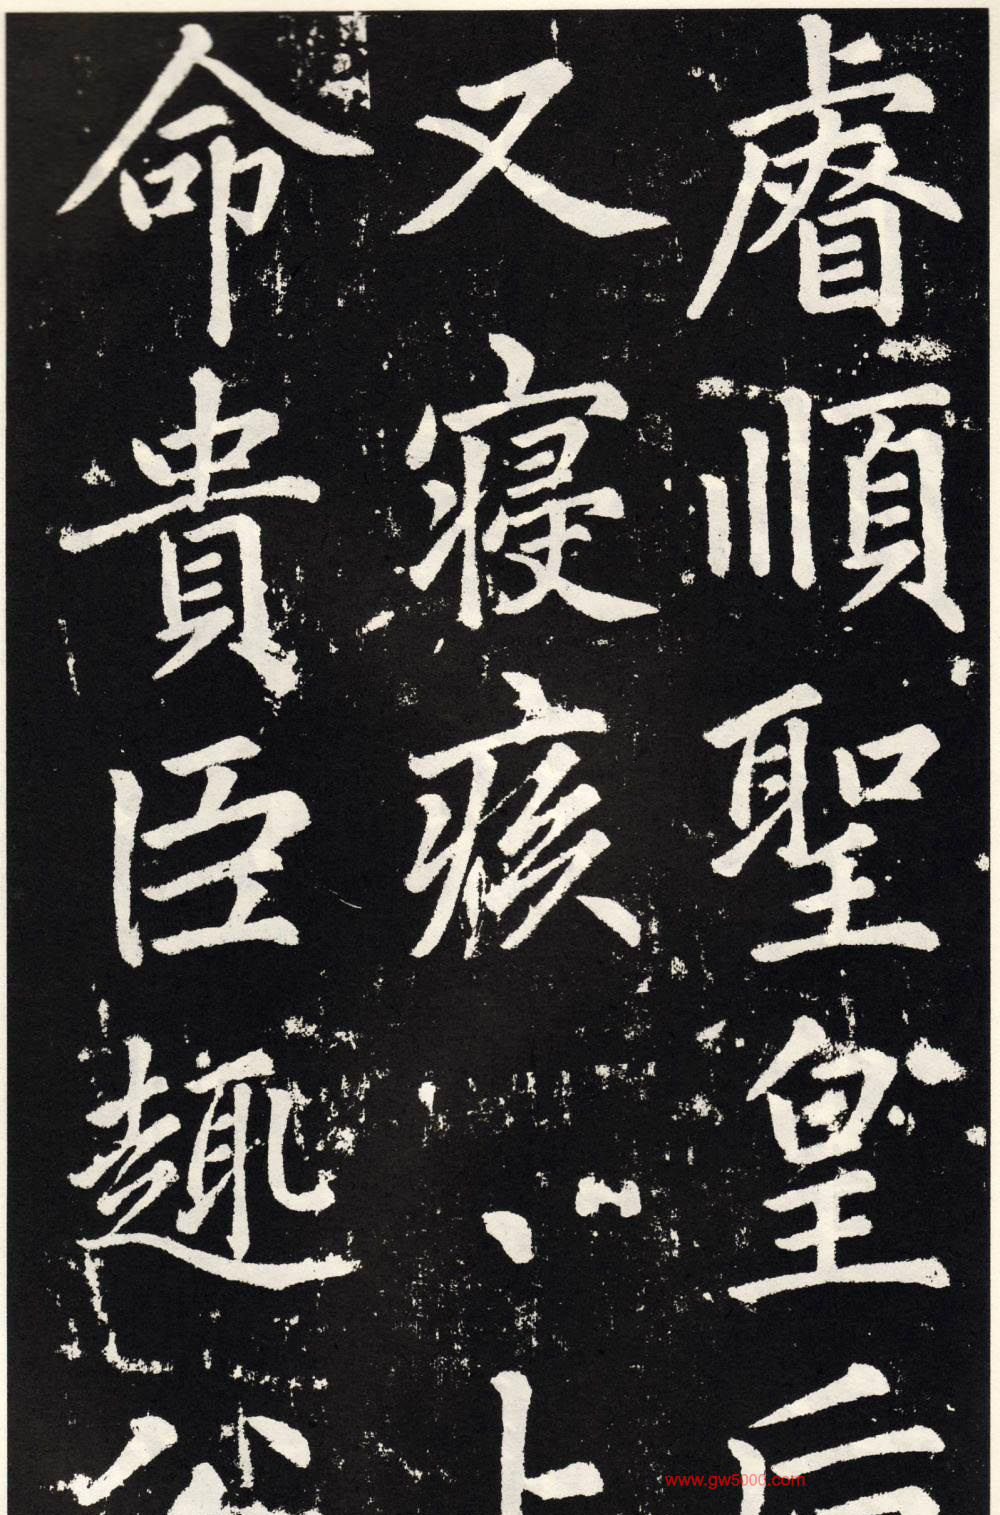 睿順聖皇后
又寢疾上
命貴臣趣
www.gw5000.com